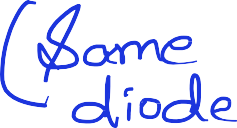 (Same
diode